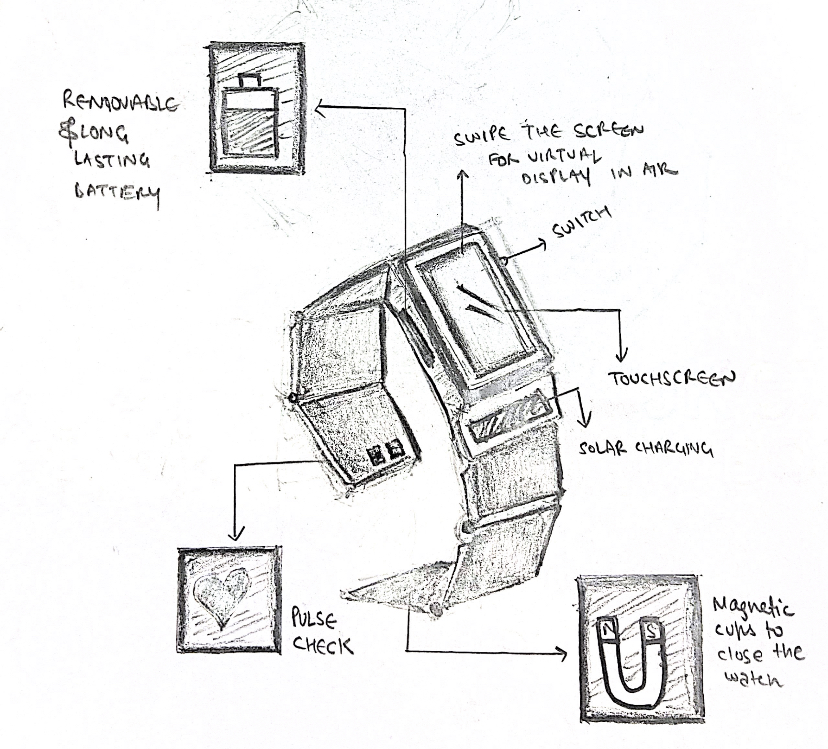 REMOVABLE
& LONG
LASTING
BATTERY
SWIPE THE SCREEN
FOR VIRTUAL
DISPLAY IN AIR
SWITCH
TOUCHSCREEN
SOLAR CHARGING
PULSE
CHECK
N S
Magnetic
cups to
close the
watch